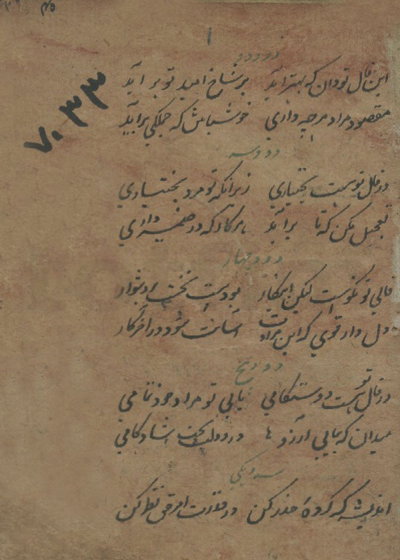 این فال تو دان که بهتر آید بر شاخ امید تو بر آید
مقصود مراد هرچه داری خوش باش که جملگی برآید
دو و سه
در فال تو هست بختیاری زیرا که تو مرد بختیاری
تعجیل مکن که تا برآید هر کار که در ضمیر داری
دو و چهار
فالی تو نکوست لیکن این کار بودست نخست دشوار
دل دار قوی که این مرادت آسانت شود در آخر کار
دو و پنج
در فال تو هست دوستکامی یابی تو مراد خود تمامی
میدان که بیابی آرزوها در دولت بخت شادکامی
سه و یکی
اندیشه که کرده حذر کن در قدرت نظر کن
۷۰۳۳